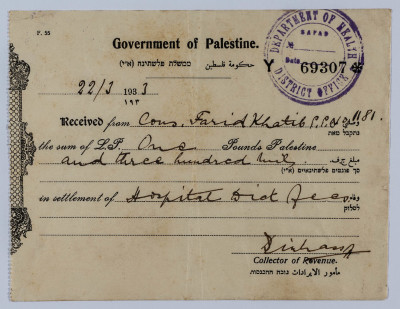 F. 55
Government of Palestine.
حكومة فلسطين ממשלת פלשתינה (א״י)
DEPARTMENT OF HEALTH
SAFAD
No
Date
DISTRICT OFFICE
Y 69307
22/3 1933
١٩٣
Received from Cons. Farid Khatib P.P. No 1181.
נתקבל מאת
the sum of L.P. One Pounds Palestine
and three hundred mils
סך פונטים פלשתינאים (א״י)
in settlement of Hospital Diet fees
לסלוק
Collector of Revenue.
مأمور الايرادات גובה ההכנסות